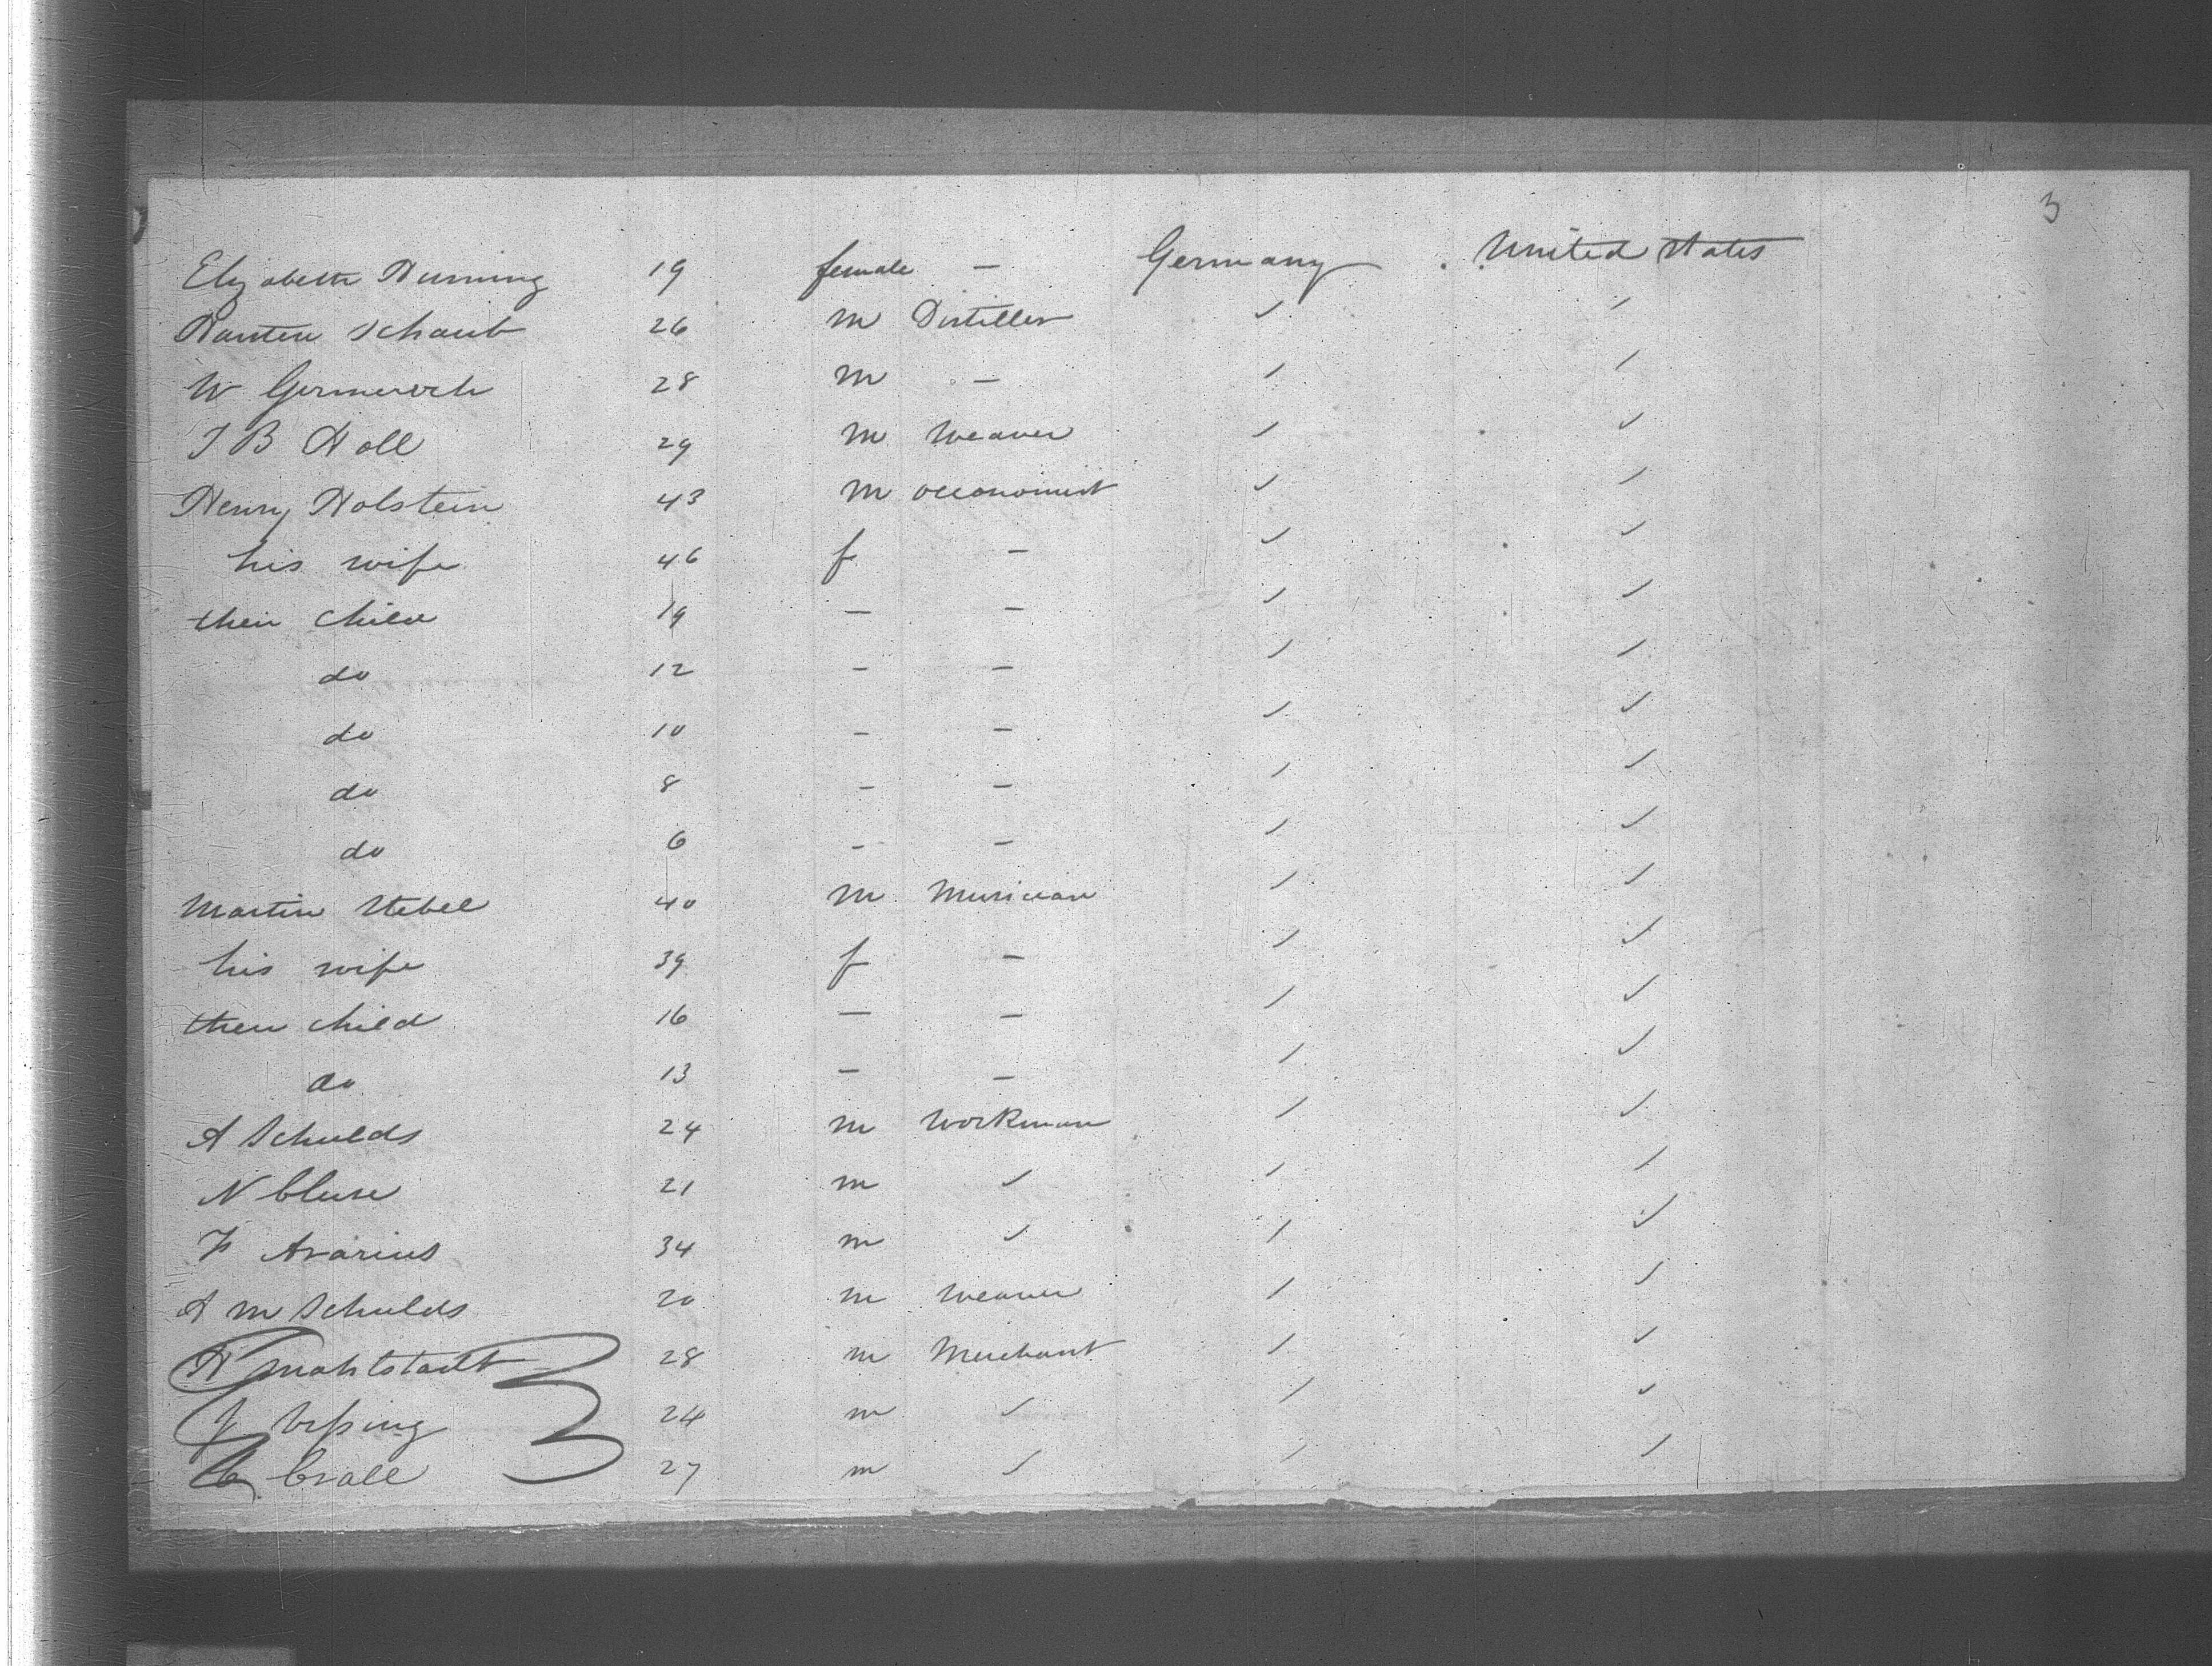 3
Elizabeth Hurning 19 female — Germany United States
Schaub 26 m Distiller ✓ ✓
W 28 m — ✓ ✓
J B Holl 29 m Weaver ✓ ✓
Henry Holstein 43 m occonomist ✓ ✓
his wife 46 f — ✓ ✓
their child 19 — — ✓ ✓
do 12 — — ✓ ✓
do 10 — — ✓ ✓
do 8 — — ✓ ✓
do 6 — — ✓ ✓
Martin Stebel 40 m Musician ✓ ✓
his wife 39 f — ✓ ✓
their child 16 — — ✓ ✓
do 13 — — ✓ ✓
A Schulds 24 m Workman ✓ ✓
N Cluse 21 m ✓ ✓ ✓
F Avarius 34 m ✓ ✓ ✓
A m Schulds 20 m Weaver ✓ ✓
H Mahlstadt 28 m Merchant ✓ ✓
24 m ✓ ✓ ✓
C Crall 27 m ✓ ✓ ✓